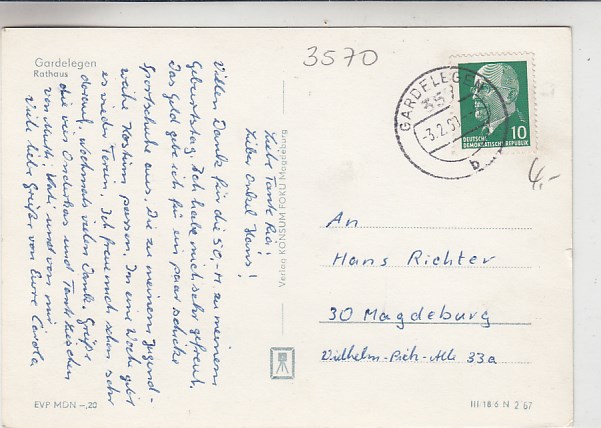 Gardelegen
Rathaus
3570
GARDELEGEN
357
-3.2.
b
10
DEUTSCHE
DEMOKRATISCHE REPUBLIK
4,-
Liebe Tante Ria!
Lieber Onkel Hans!
Vielen Dank für die 50,- M zu meinem
Geburtstag. Ich habe mich sehr gefreut.
Das Geld gebe ich für ein paar schicke
Sportschuhe aus. Die zu meinem Jugend-
weihe Kostüm passen. In einer Woche gibt
es wieder Ferien. Ich freue mich schon sehr
darauf. Nochmals vielen Dank. Grüße
die von Onkel und Tante
von Mutti, Vati und von mir.
Viele liebe Grüße von Eure Carola
Verlag KONSUM FOKU Magdeburg
An
Hans Richter
30 Magdeburg
Wilhelm-Pieck-Alle 33a
EVP MDN -,20
III 18 6 N 2 67